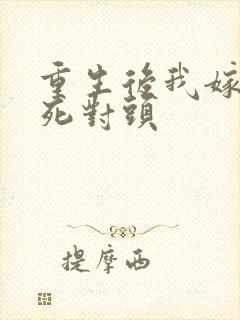 重生後我嫁
死對頭
提摩西